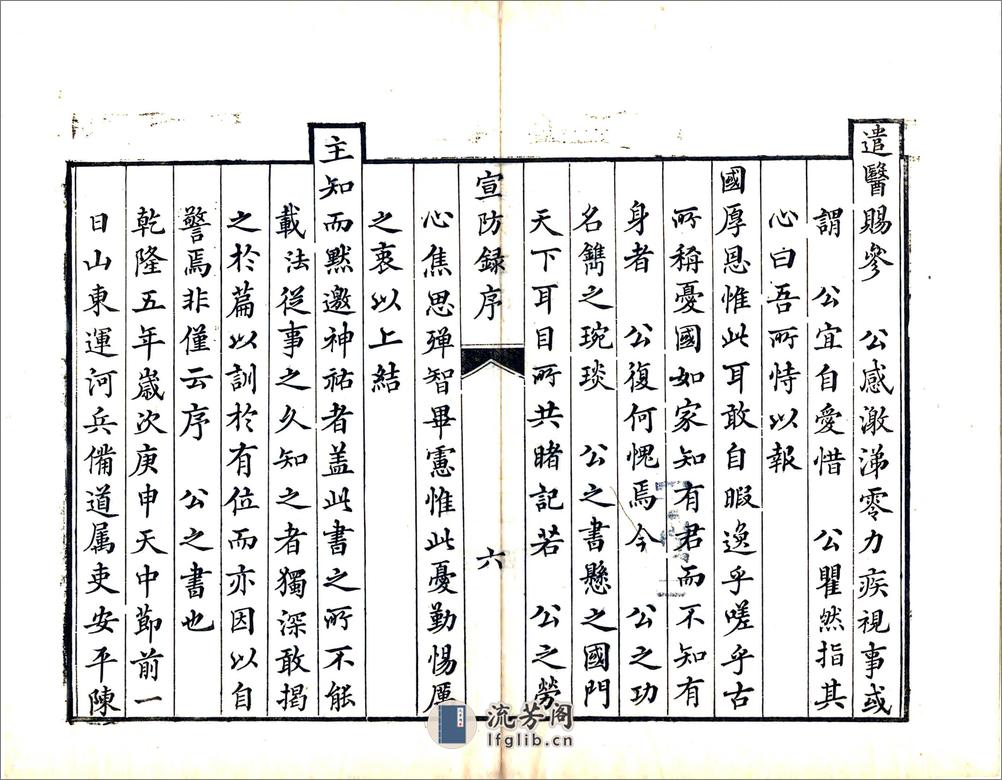 遣醫賜參　公感激涕零力疾視事或
謂　公宜自愛惜　公瞿然指其
心曰吾所恃以報
國厚恩惟此耳敢自暇逸乎嗟乎古
所稱憂國如家知有君而不知有
身者　公復何愧焉今　公之功
名鐫之琬琰　公之書懸之國門
天下耳目所共睹記若　公之勞
宣防録序　六
心焦思殫智畢慮惟此憂勤惕厲
之衷以上結
主知而黙邀神祐者盖此書之所不能
載法從事之久知之者獨深敢揭
之於篇以訓於有位而亦因以自
警焉非僅云序　公之書也
乾隆五年歲次庚申天中節前一
日山東運河兵備道属吏安平陳
流芳阁
lfglib.cn